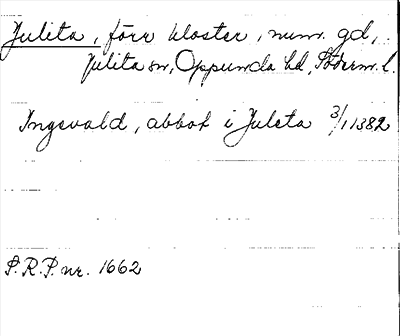 Julita, förr kloster, num. gd,
Julita sn, Oppunda hd, Söderm. l.
Ingevald, abbot i Juleta 3/1 1382
S.R.P. nr. 1662